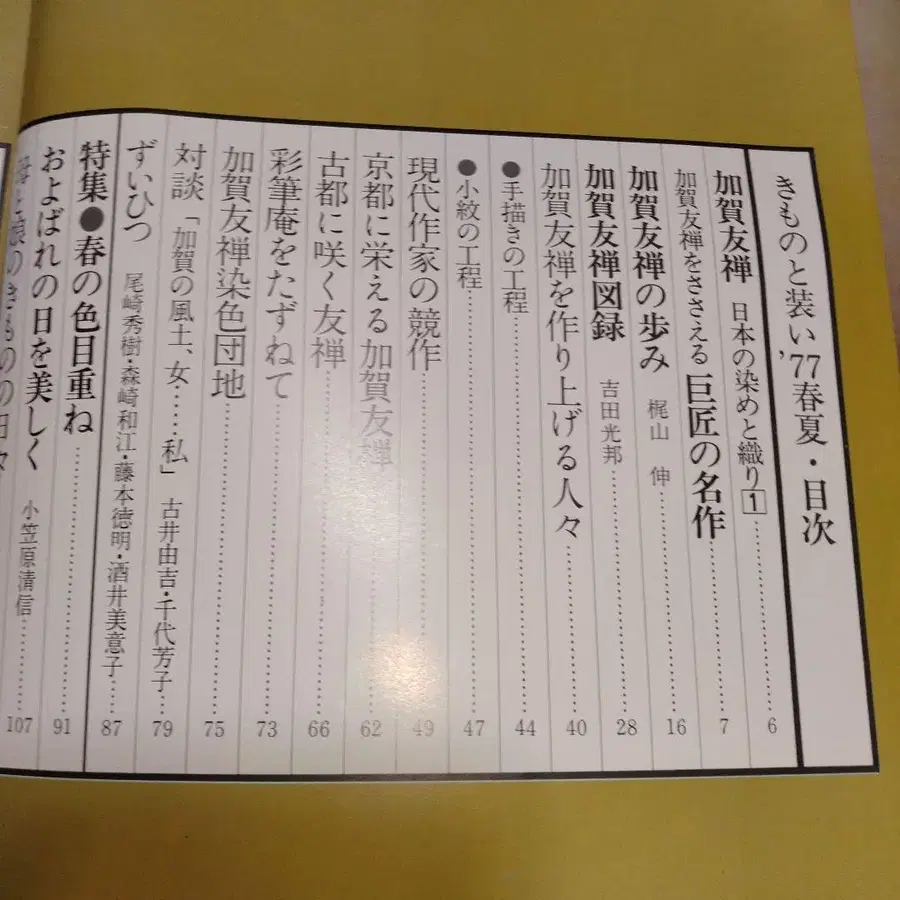 きものと装い '77春夏・目次
加賀友禅 日本の染めと織り1 6
加賀友禅をささえる 巨匠の名作 7
加賀友禅の歩み 梶山 伸 16
加賀友禅図録 吉田光邦 28
加賀友禅を作り上げる人々 40
●手描きの工程 44
●小紋の工程 47
現代作家の競作 49
京都に栄える加賀友禅 62
古都に咲く友禅 66
彩筆庵をたずねて 73
加賀友禅染色団地 75
対談「加賀の風土、女……私」 古井由吉・千代芳子 79
ずいひつ 尾崎秀樹・森崎和江・藤本徳明・酒井美意子 87
特集●春の色目重ね 91
およばれの日を美しく 小笠原清信 107
と娘のきものの日々